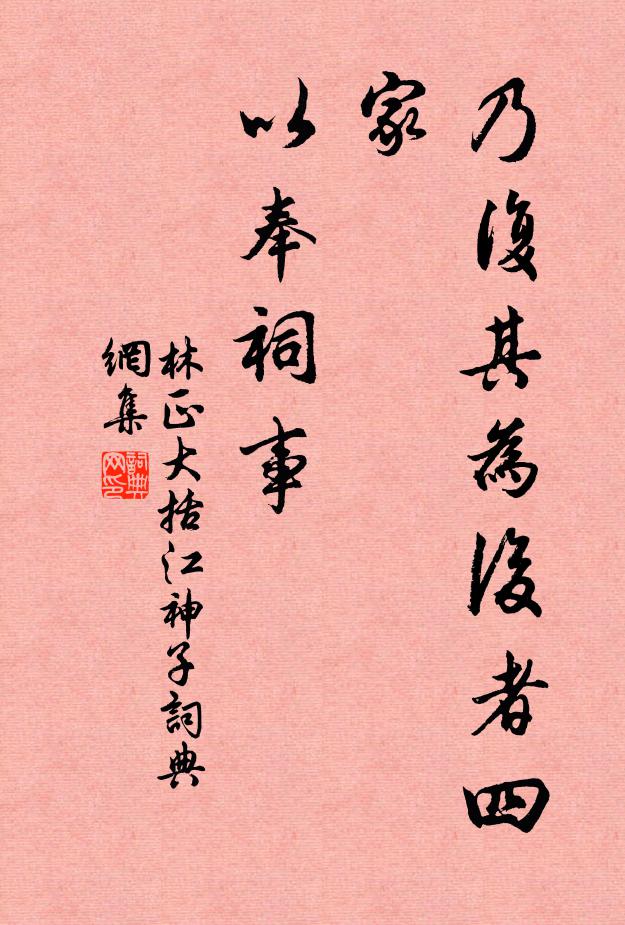 乃復其為後者四
家
以奉祠事
林正大括江神子詞典
網集
詞典网印